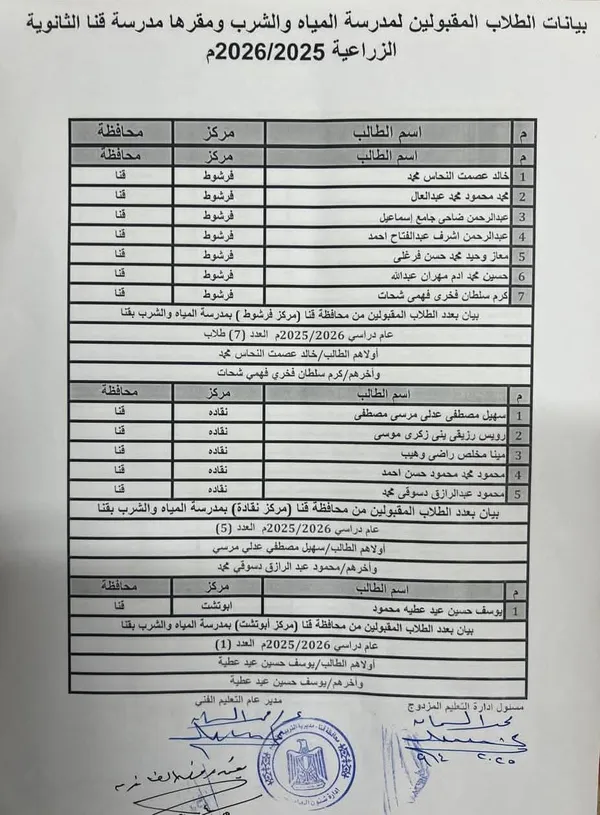 بيانات الطلاب المقبولين لمدرسة المياه والشرب ومقرها مدرسة قنا الثانوية
الزراعية 2026/2025م
م اسم الطالب مركز محافظة
م اسم الطالب مركز محافظة
1 خالد عصمت النحاس محمد فرشوط قنا
2 محمد محمود محمد عبدالعال فرشوط قنا
3 عبدالرحمن ضاحى جامع إسماعيل فرشوط قنا
4 عبدالرحمن اشرف عبدالفتاح احمد فرشوط قنا
5 معاز وحيد محمد حسن فرغلى فرشوط قنا
6 حسين محمد ادم مهران عبدالله فرشوط قنا
7 كرم سلطان فخرى فهمى شحات فرشوط قنا
بيان بعدد الطلاب المقبولين من محافظة قنا (مركز فرشوط ) بمدرسة المياه والشرب بقنا
عام دراسي 2025/2026م العدد (7) طلاب
أولاهم الطالب/خالد عصمت النحاس محمد
وأخرهم/كرم سلطان فخري فهمي شحات
م اسم الطالب مركز محافظة
1 سهيل مصطفى عدلى مرسى مصطفى نقاده قنا
2 رويس رزيقى بنى زكرى موسى نقاده قنا
3 مينا مخلص راضى وهيب نقاده قنا
4 محمود محمد محمود حسن احمد نقاده قنا
5 محمود عبدالرازق دسوقى محمد نقاده قنا
بيان بعدد الطلاب المقبولين من محافظة قنا (مركز نقادة) بمدرسة المياه والشرب بقنا
عام دراسي 2025/2026م العدد (5)
أولاهم الطالب/سهيل مصطفي عدلي مرسي
وأخرهم/محمود عبد الرازق دسوقي محمد
م اسم الطالب مركز محافظة
1 يوسف حسين عيد عطيه محمود ابوتشت قنا
بيان بعدد الطلاب المقبولين من محافظة قنا (مركز أبوتشت) بمدرسة المياه والشرب بقنا
عام دراسي 2025/2026م العدد (1)
أولاهم الطالب/يوسف حسين عيد عطية
وأخرهم/يوسف حسين عيد عطية
مسئول ادارة التعليم المزدوج
مدير عام التعليم الفني